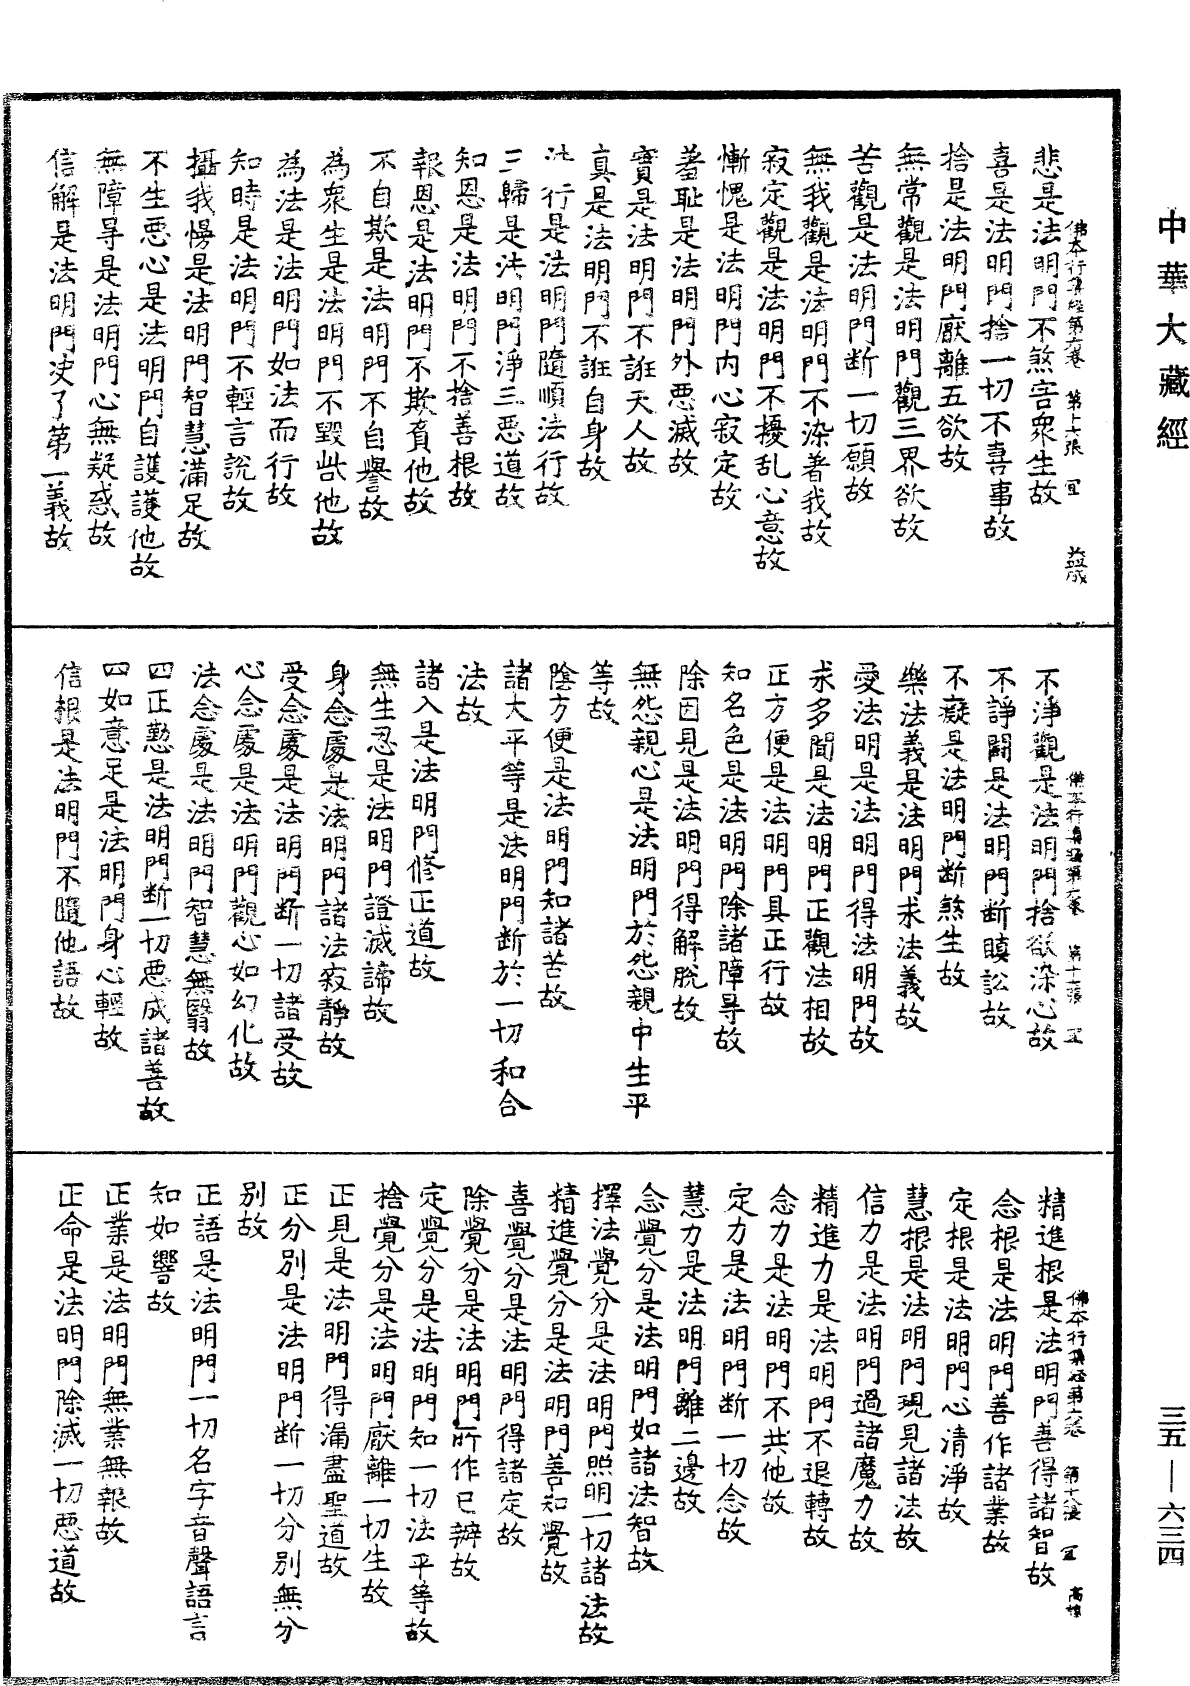 中華大藏經
佛本行集經第六卷 第十七張 宜
悲是法明門不煞害衆生故
喜是法明門捨一切不喜事故
捨是法明門厭離五欲故
無常觀是法明門觀三界欲故
苦觀是法明門断一切願故
無我觀是法明門不染著我故
寂定觀是法明門不擾乱心意故
慚愧是法明門内心寂定故
羞恥是法明門外惡滅故
實是法明門不誑天人故
真是法明門不誑自身故
法行是法明門隨順法行故
三歸是法明門淨三惡道故
知恩是法明門不捨善根故
報恩是法明門不欺負他故
不自欺是法明門不自譽故
為衆生是法明門不毀呰他故
為法是法明門如法而行故
知時是法明門不輕言說故
攝我慢是法明門智慧滿足故
不生惡心是法明門自護護他故
無障㝵是法明門心無疑惑故
信解是法明門决了第一義故
佛本行集經第六卷 第十七張 宜
不淨觀是法明門捨欲染心故
不諍鬪是法明門断瞋訟故
不癡是法明門断煞生故
樂法義是法明門求法義故
愛法明是法明門得法明門故
求多聞是法明門正觀法相故
正方便是法明門具正行故
知名色是法明門除諸障㝵故
除因見是法明門得解脫故
無怨親心是法明門於怨親中生平
等故
陰方便是法明門知諸苦故
諸大平等是法明門断於一切和合
法故
諸入是法明門修正道故
無生忍是法明門證滅諦故
身念處是法明門諸法寂靜故
受念處是法明門断一切諸受故
心念處是法明門觀心如幻化故
法念處是法明門智慧無翳故
四正懃是法明門断一切惡成諸善故
四如意足是法明門身心輕故
信根是法明門不隨他語故
佛本行集經第六卷 第十八張 宜
精進根是法明門善得諸智故
念根是法明門善作諸業故
定根是法明門心清淨故
慧根是法明門現見諸法故
信力是法明門過諸魔力故
精進力是法明門不退轉故
念力是法明門不共他故
定力是法明門断一切念故
慧力是法明門離二邊故
念覺分是法明門如諸法智故
擇法覺分是法明門照明一切諸法故
精進覺分是法明門善知覺故
喜覺分是法明門得諸定故
除覺分是法明門所作已辦故
定覺分是法明門知一切法平等故
捨覺分是法明門厭離一切生故
正見是法明門得漏盡聖道故
正分別是法明門断一切分別無分
別故
正語是法明門一切名字音聲語言
知如響故
正業是法明門無業無報故
正命是法明門除滅一切惡道故
三五—六三四